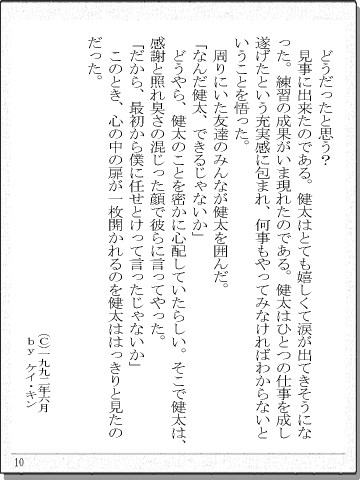 どうだったと思う？
見事に出来たのである。健太はとても嬉しくて涙が出てきそうにな
った。練習の成果がいま現れたのである。健太はひとつの仕事を成し
遂げたという充実感に包まれ、何事もやってみなければわからないと
いうことを悟った。
周りにいた友達のみんなが健太を囲んだ。
「なんだ健太、できるじゃないか」
どうやら、健太のことを密かに心配していたらしい。そこで健太は、
感謝と照れ臭さの混じった顔で彼らに言ってやった。
「だから、最初から僕に任せとけって言ったじゃないか」
このとき、心の中の扉が一枚開かれるのを健太ははっきりと見たの
だった。
（Ｃ）一九九二年六月
ｂｙ ケイ・キン
10